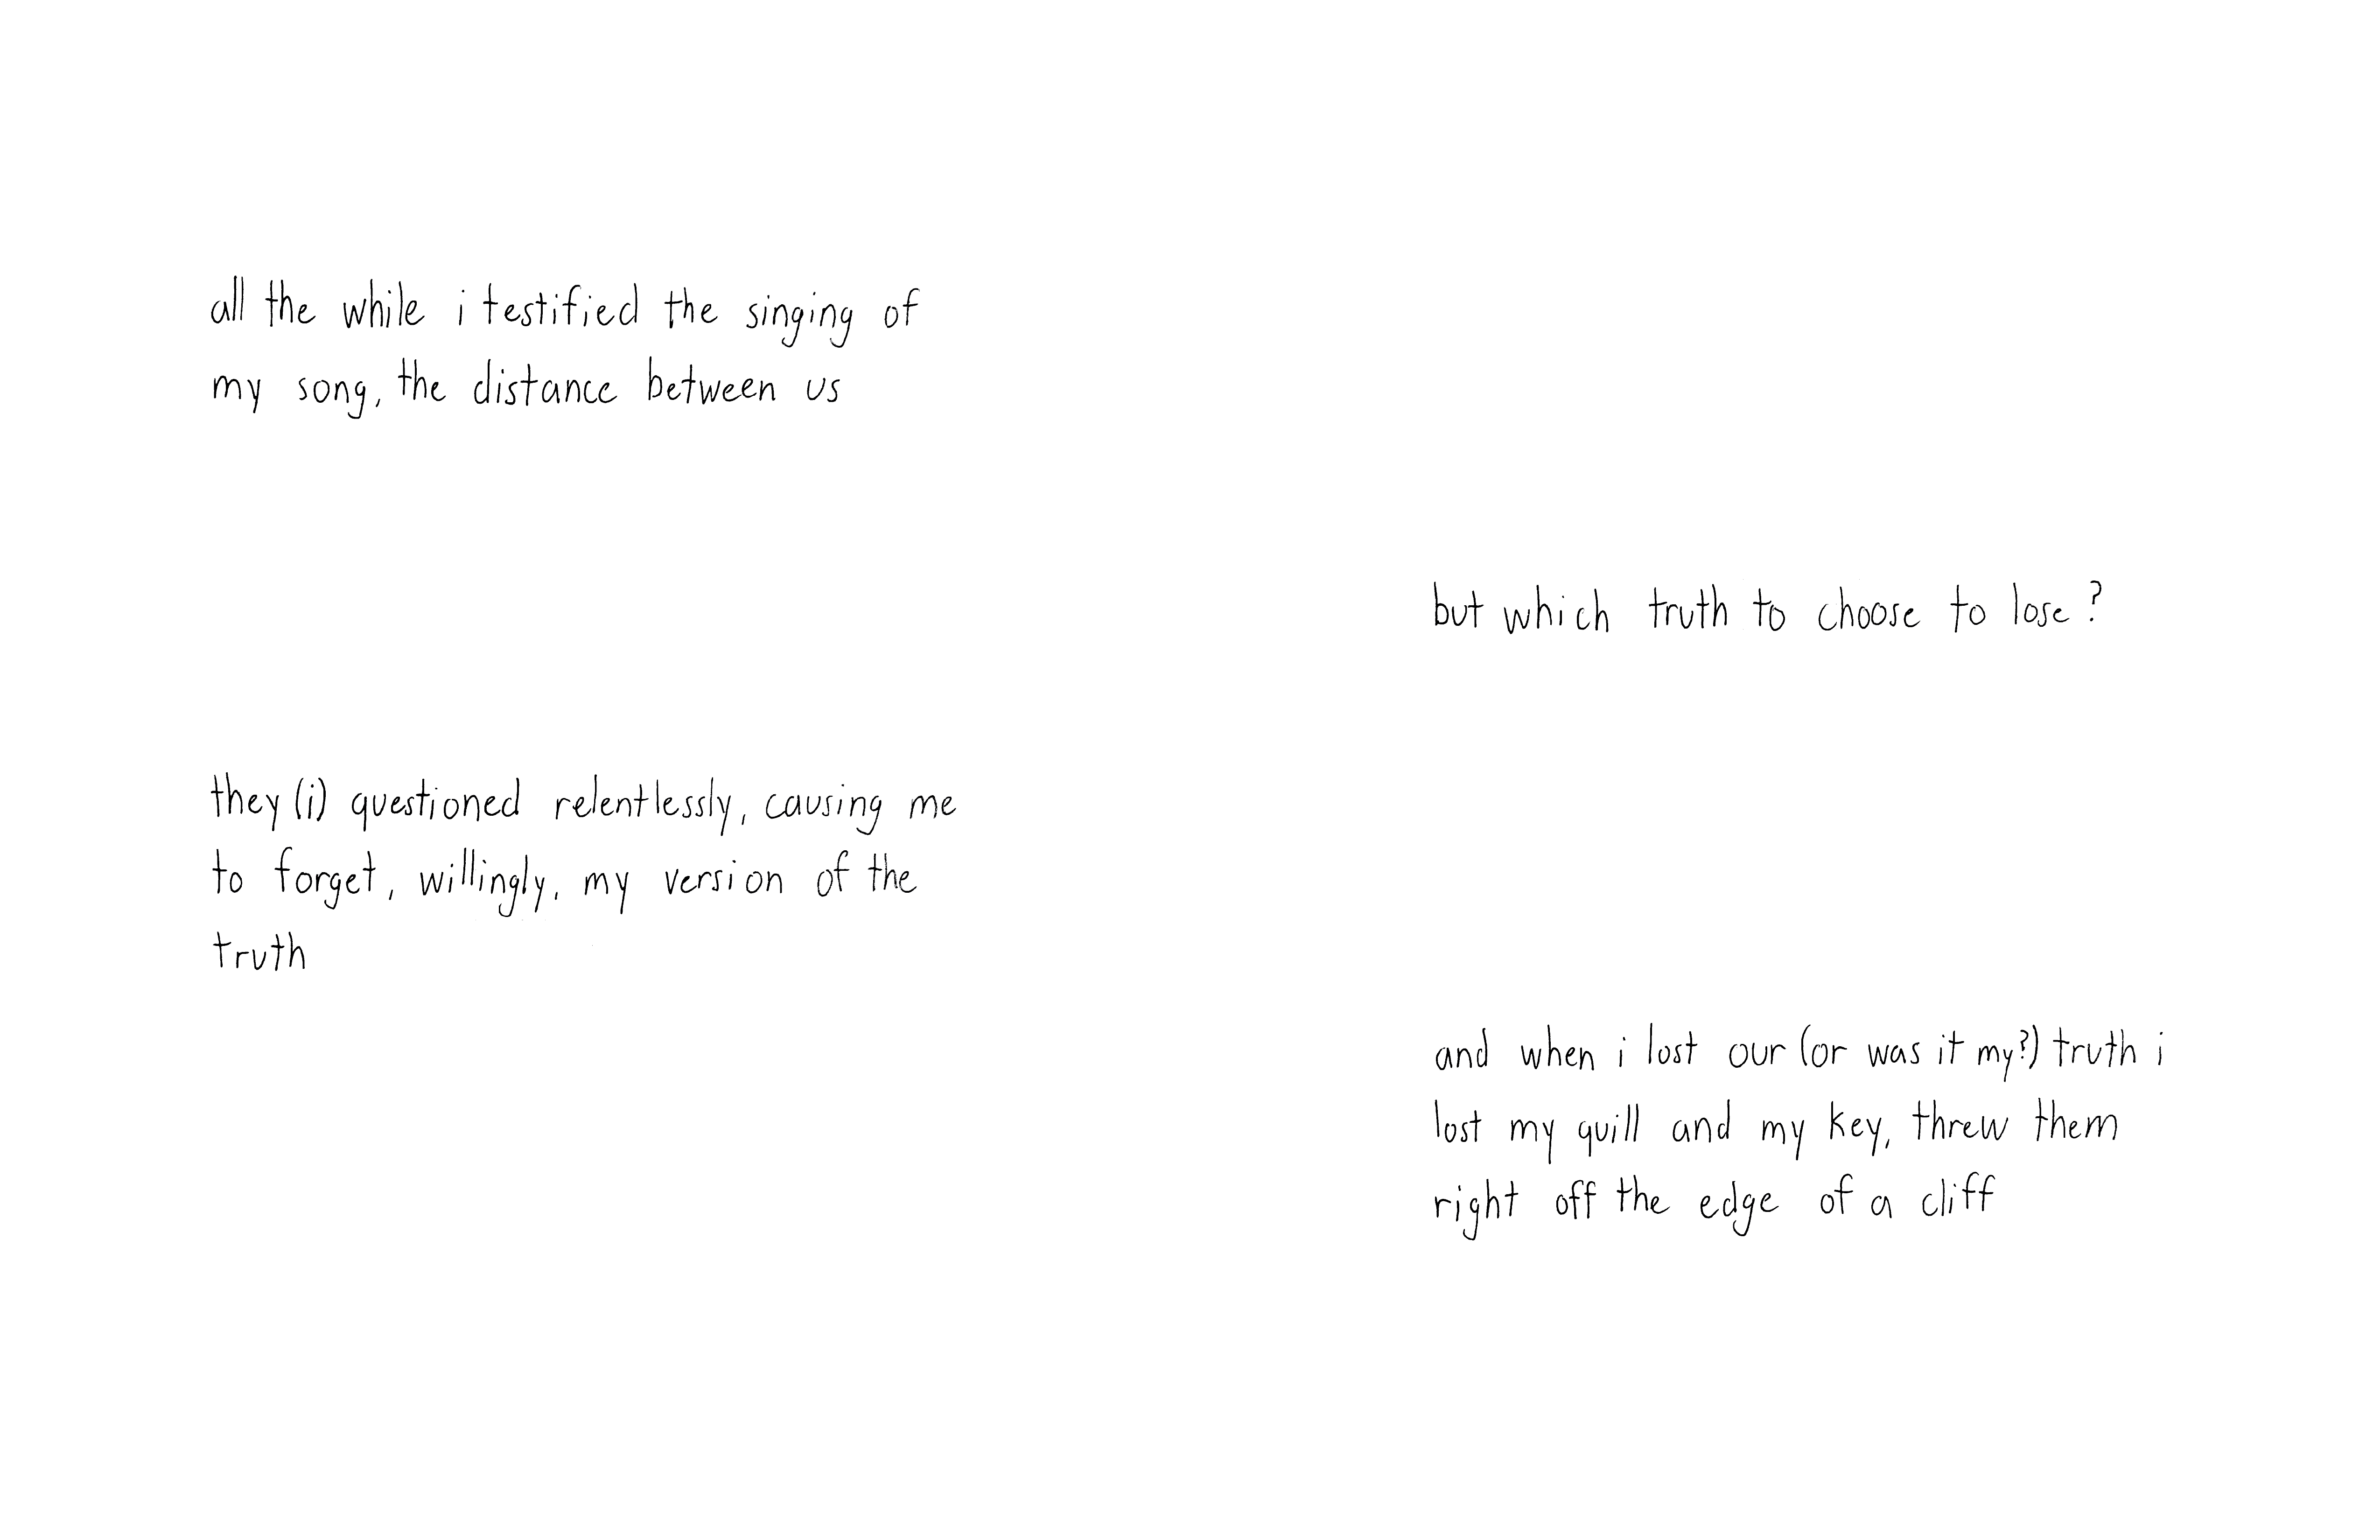 all the while i testified the singing of
my song, the distance between us
they (i) questioned relentlessly, causing me
to forget, willingly, my version of the
truth
but which truth to choose to lose?
and when i lost our (or was it my?) truth i
lost my quill and my key, threw them
right off the edge of a cliff